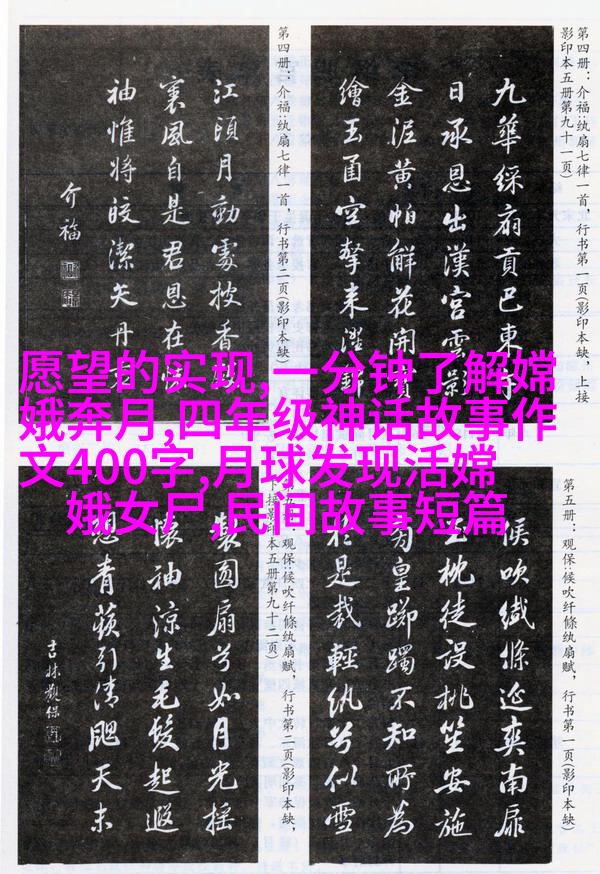 第四册：介福：纨扇七律一首，行书第一页（影印本缺），上接
影印本五册第九十一页）
九華綵扇貢巴東
日承恩出漢宮雲影
金泥黄帕鮮花開
繪玉函空擎来
第四册：介福：纨扇七律一首，行书第二页（影印本缺）
江頭月動處披香
裏風自是君恩在
袖惟将皎潔矢丹
介福
愿望的实现,一分钟了解嫦
娥奔月,四年级神话故事作
文400字,月球发现活嫦
娥女尸,民间故事短篇
第五册：观保：候吹纤絛纨扇赋，行书第一页（影印本缺）
候吹纎絛延爽南扉
玉枕徒设桃笙安施
皇躑躅不知所為
於是裁輕纨兮似雪
观保：候吹纤絛纨扇赋，行书第二页（影印本缺，
下接影印本五册第九十二页）
製圆扇兮如月光摇
懐袖涼生毛髮起遐
想青蘋引清飔天末
吉林觀保